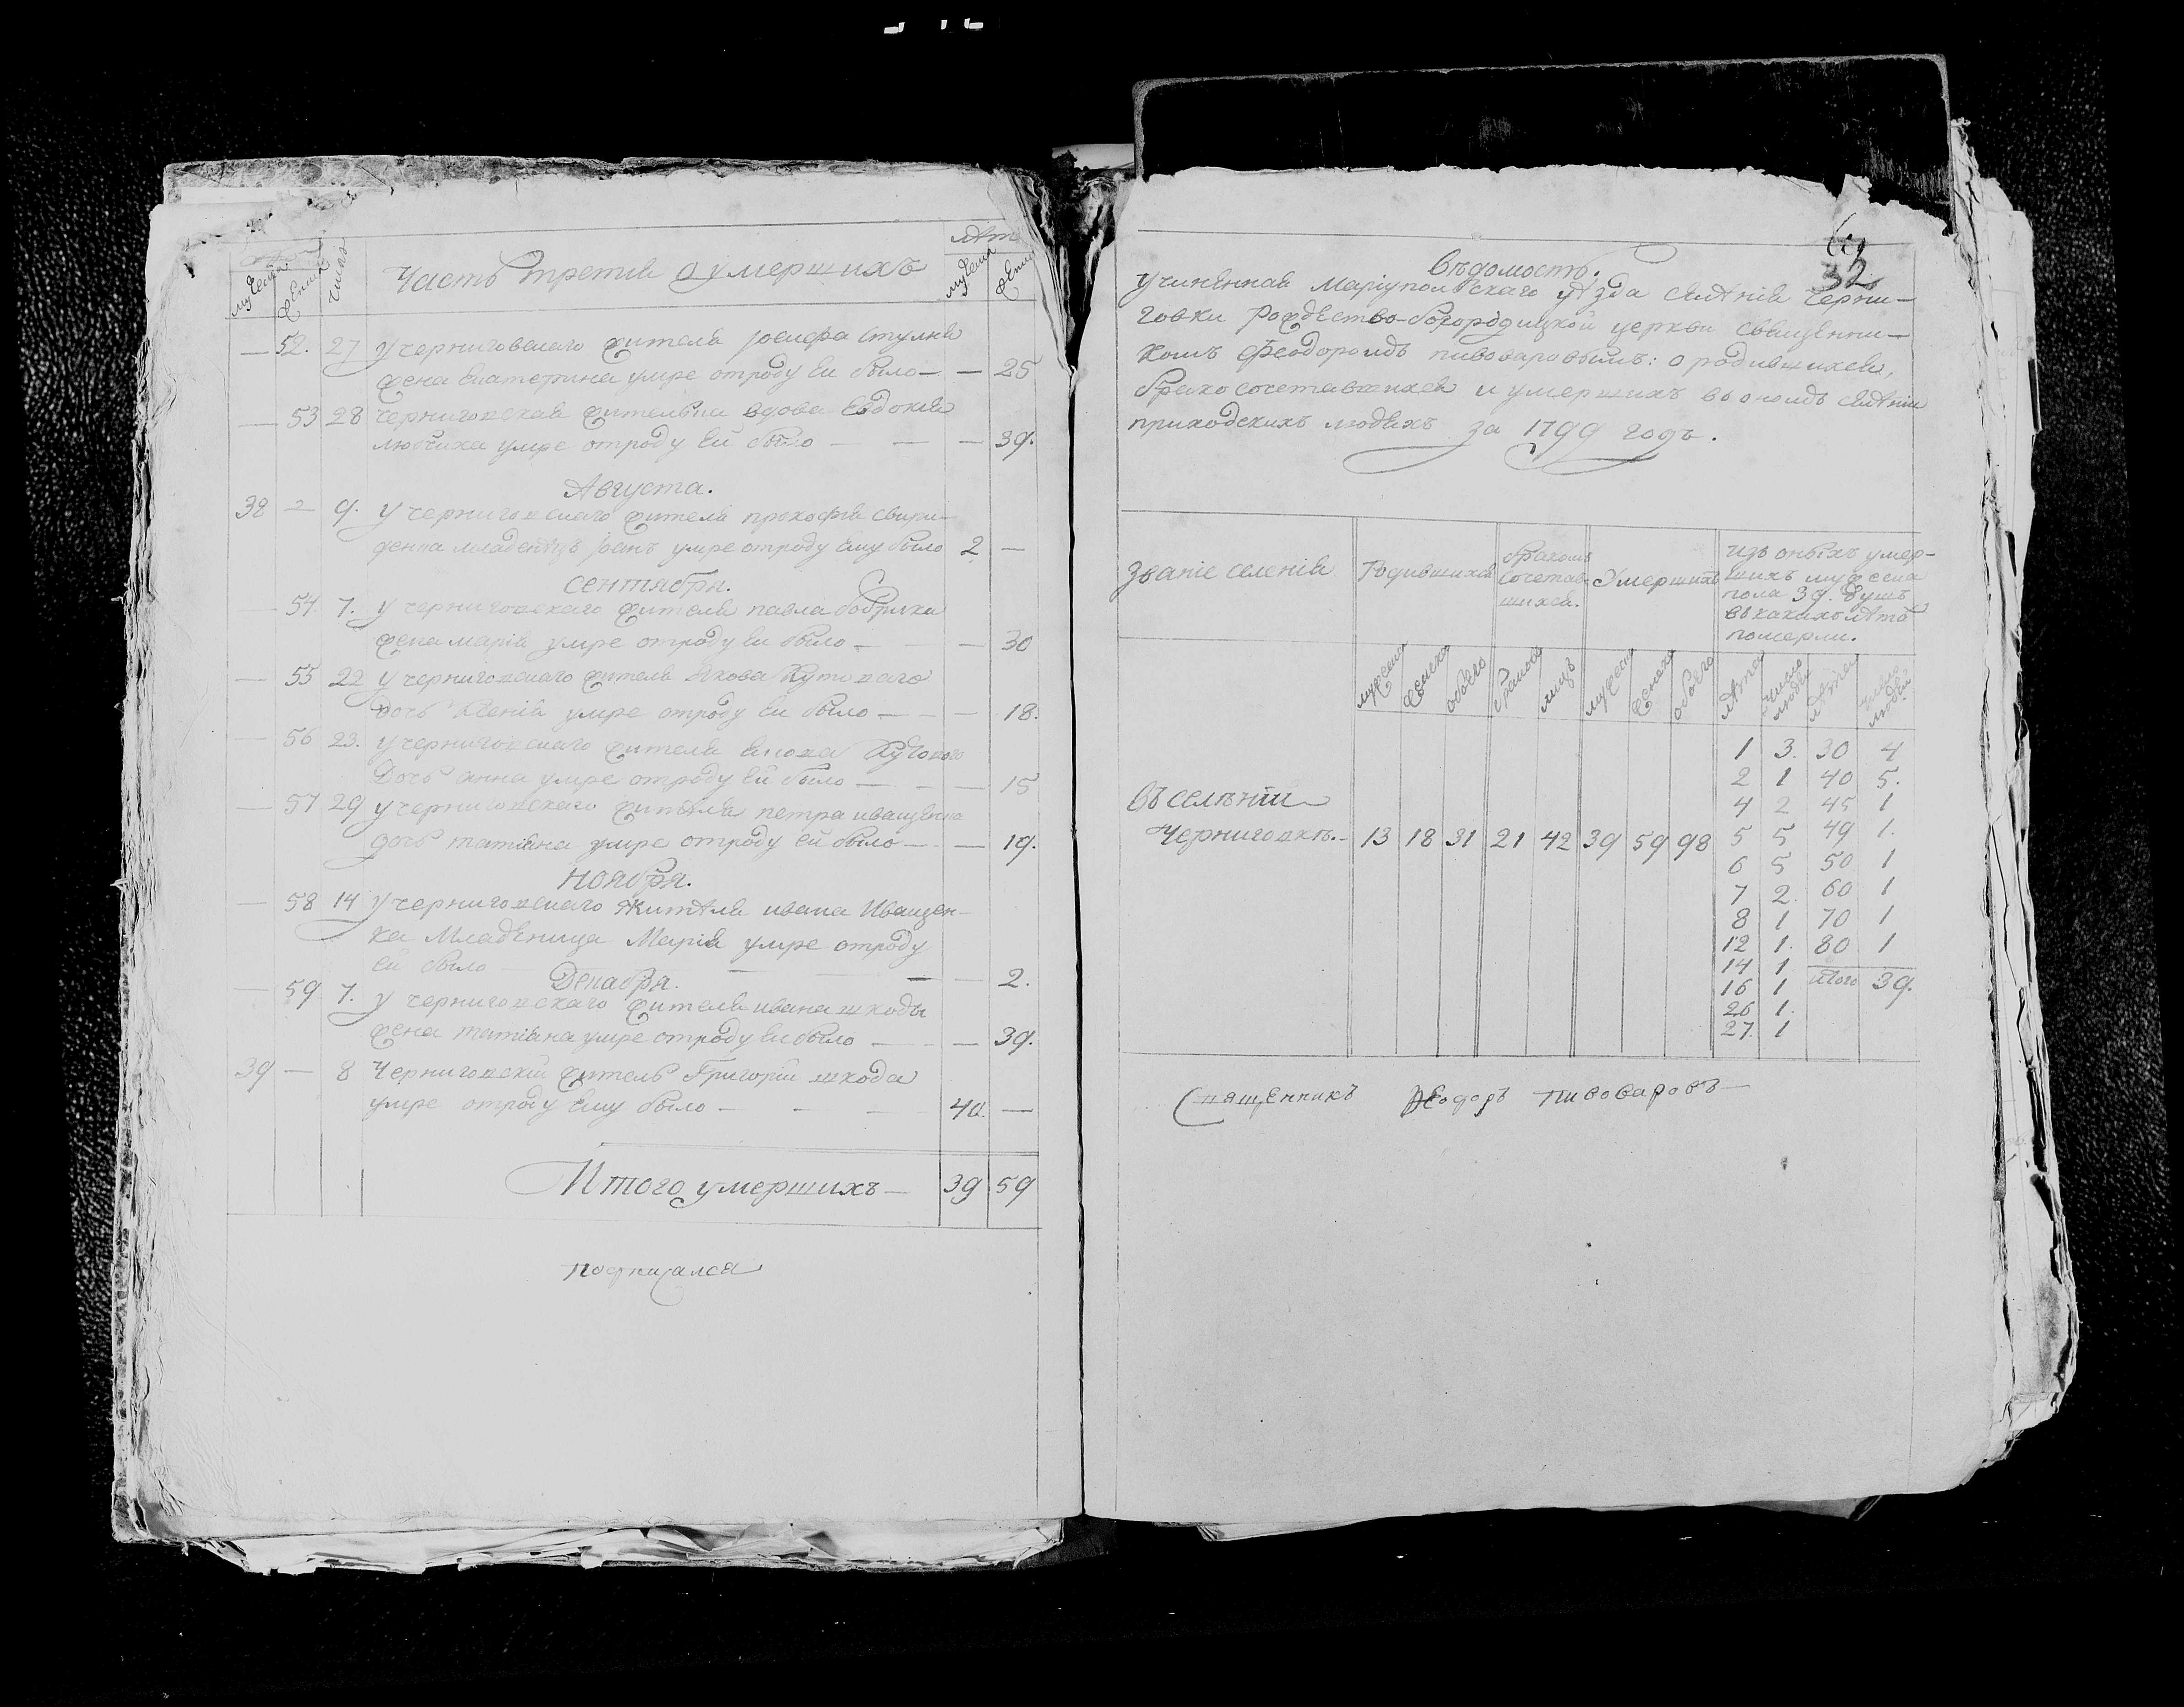 мужеска женска число Часть третия о умершихъ лѣта мужеска женска
— 52. 27 У черниговскаго жителя Iосифа Ступки
жена Екатерина умре отроду ей было — — 25
— 53 28 Черниговская жителька вдова Евдокия
умре отроду ей было — — — 39.
Августа.
38 — 9. У черниговскаго жителя прокофия свири-
денка младенецъ Iоанъ умре отроду ему было 2 —
сентября.
— 54 7. у черниговскаго жителя павла бобрика
жена мария умре отроду ей было — — — 30
— 55 22 у черниговскаго жителя якова
дочь Ксения умре отроду ей было — — — 18.
— 56 23. у черниговскаго жителя
Дочь анна умре отроду ей было — — — 15
— 57 29 у черниговскаго жителя петра иващенка
дочь татияна умре отроду ей было — — 19.
ноября.
— 58 14 у черниговскаго жителя ивана Иващен-
ка Младеница Мария умре отроду
ей было — — — — 2.
Декабря.
— 59 7. у черниговскаго жителя ивана шкоды
жена татияна умре отроду ей было — — — 39.
39 — 8 Черниговский житель Григорий шкода
умре отроду ему было — — — 40. —
Итого умершихъ — 39 59
подписался
32
вѣдомость.
учиненная Мариупольскаго уѣзда селѣния черни-
говки рождество-богородицкой церкви священни-
комъ Феодоромъ пивоваровымъ: о родившихся,
бракосочетавшихся и умершихъ во ономъ селѣнии
приходскихъ людехъ за 1799 годъ.
Звание селения Родившихся бракомъ сочетав-шихся. Умершихъ изъ оныхъ умер-
шихъ мужеска
пола 39. душъ
въ какихъ лѣто
померли.
мужеска женска обоего браковъ лицъ мужеска женска обоего лѣта число людей лѣта число людей
1 3. 30 4
2 1 40 5.
4 2 45 1
въ селѣнии
Черниговкѣ. — 13 18 31 21 42 39 59 98 5 5 49 1.
6 5 50 1
7 2. 60 1
8 1 70 1
12 1. 80 1
14 1 итого 39.
16 1
26 1.
27. 1
Священникъ Феодоръ Пивоваровъ